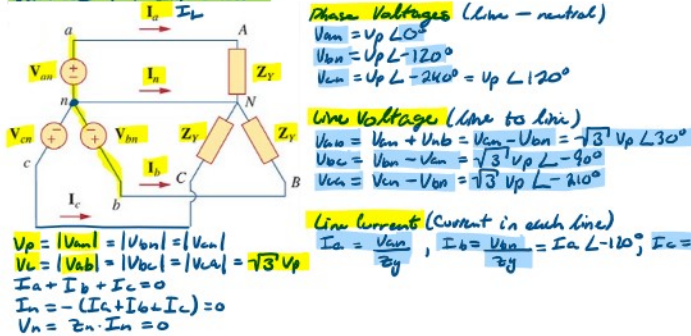 Ia IL
a A
Van + − In ZY
n N
Vcn − + − + Vbn ZY ZY
Ib
c C B
Ic b
Vp = |Van| = |Vbn| = |Vcn|
VL = |Vab| = |Vbc| = |Vca| = √3 Vp
Ia + Ib + Ic = 0
In = -(Ia + Ib + Ic) = 0
Vn = Zn · In = 0
Phase Voltages (line - neutral)
Van = Vp ∠0°
Vbn = Vp ∠-120°
Vcn = Vp ∠-240° = Vp ∠120°
Line Voltage (line to line)
Vab = Van + Vnb = Van - Vbn = √3 Vp ∠30°
Vbc = Vbn - Vcn = √3 Vp ∠-90°
Vca = Vcn - Vbn = √3 Vp ∠-210°
Line Current (Current in each line)
Ia = Van/Zy , Ib = Vbn/Zy = Ia ∠-120°, Ic =